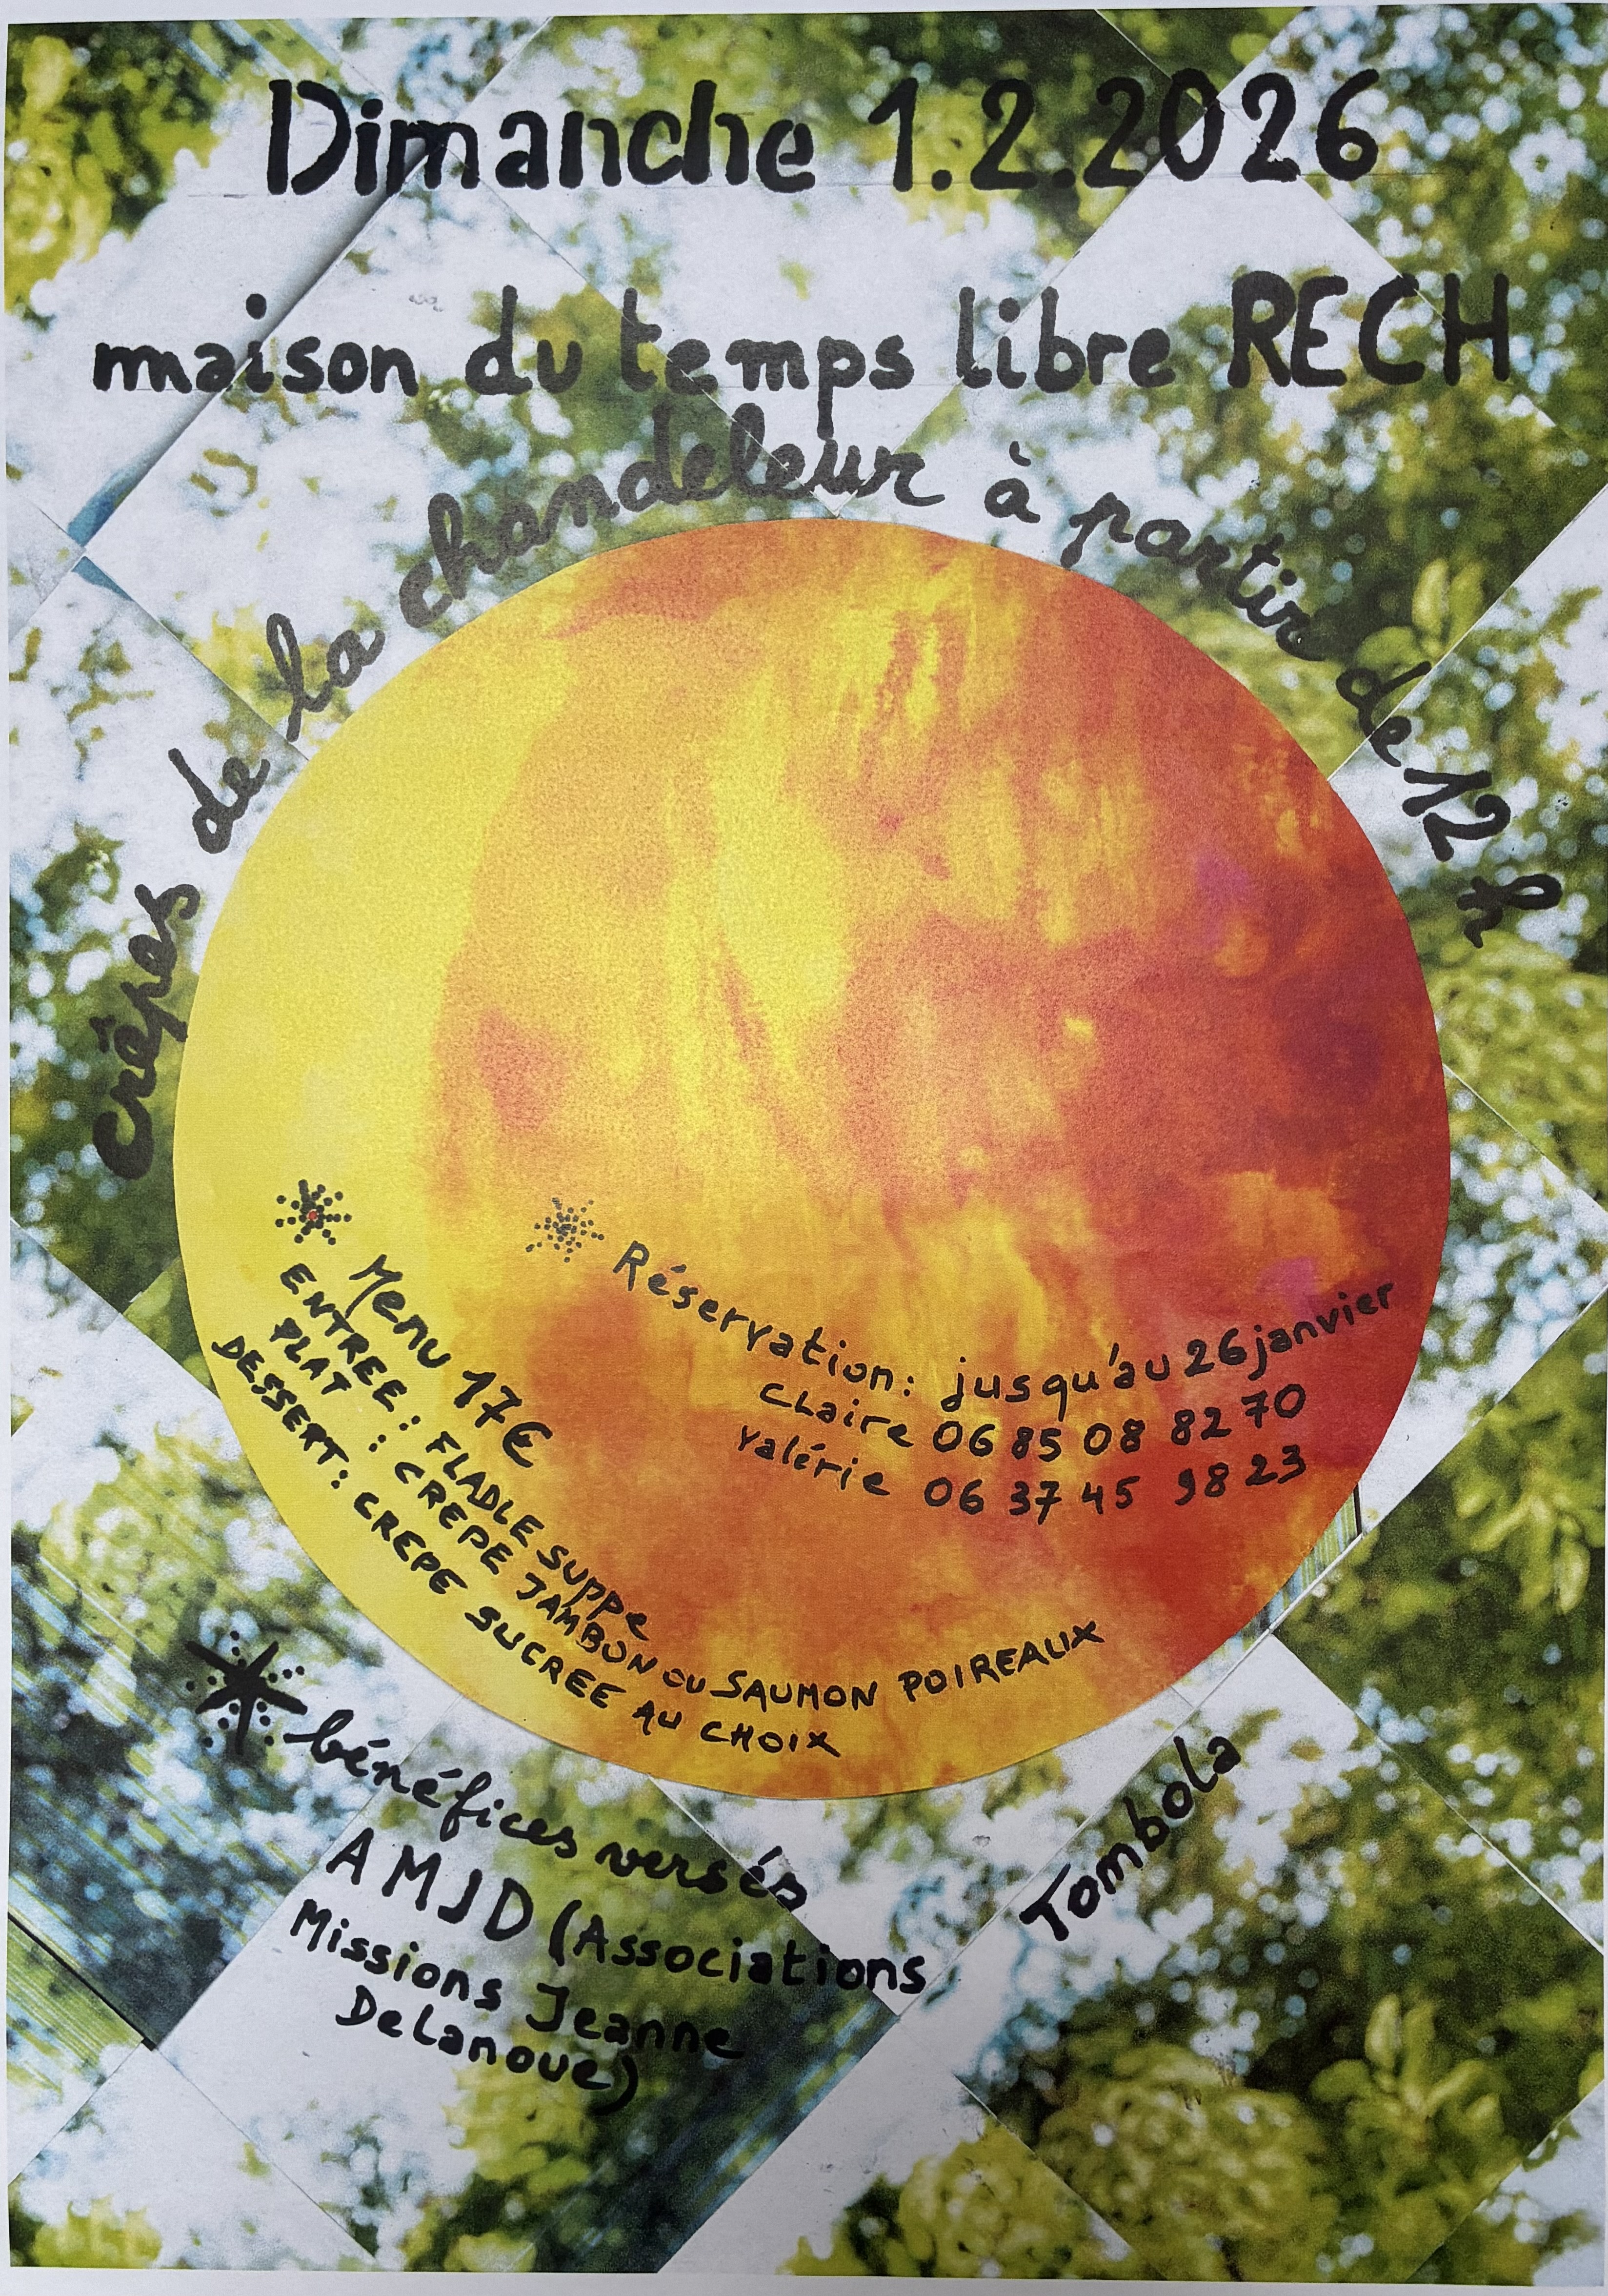 Dimanche 1.2.2026
maison du temps libre RECH
crêpes de la chandeleur à partir de 12 h
Menu 17€
ENTREE : FLADLE suppe
PLAT : CREPE JAMBON ou SAUMON POIREAUX
DESSERT : CREPE SUCREE AU CHOIX
Réservation : jusqu'au 26 janvier
Claire 06 85 08 82 70
Valérie 06 37 45 98 23
bénéfices versés
AMJD (Associations
Missions Jeanne
Delanoue)
Tombola